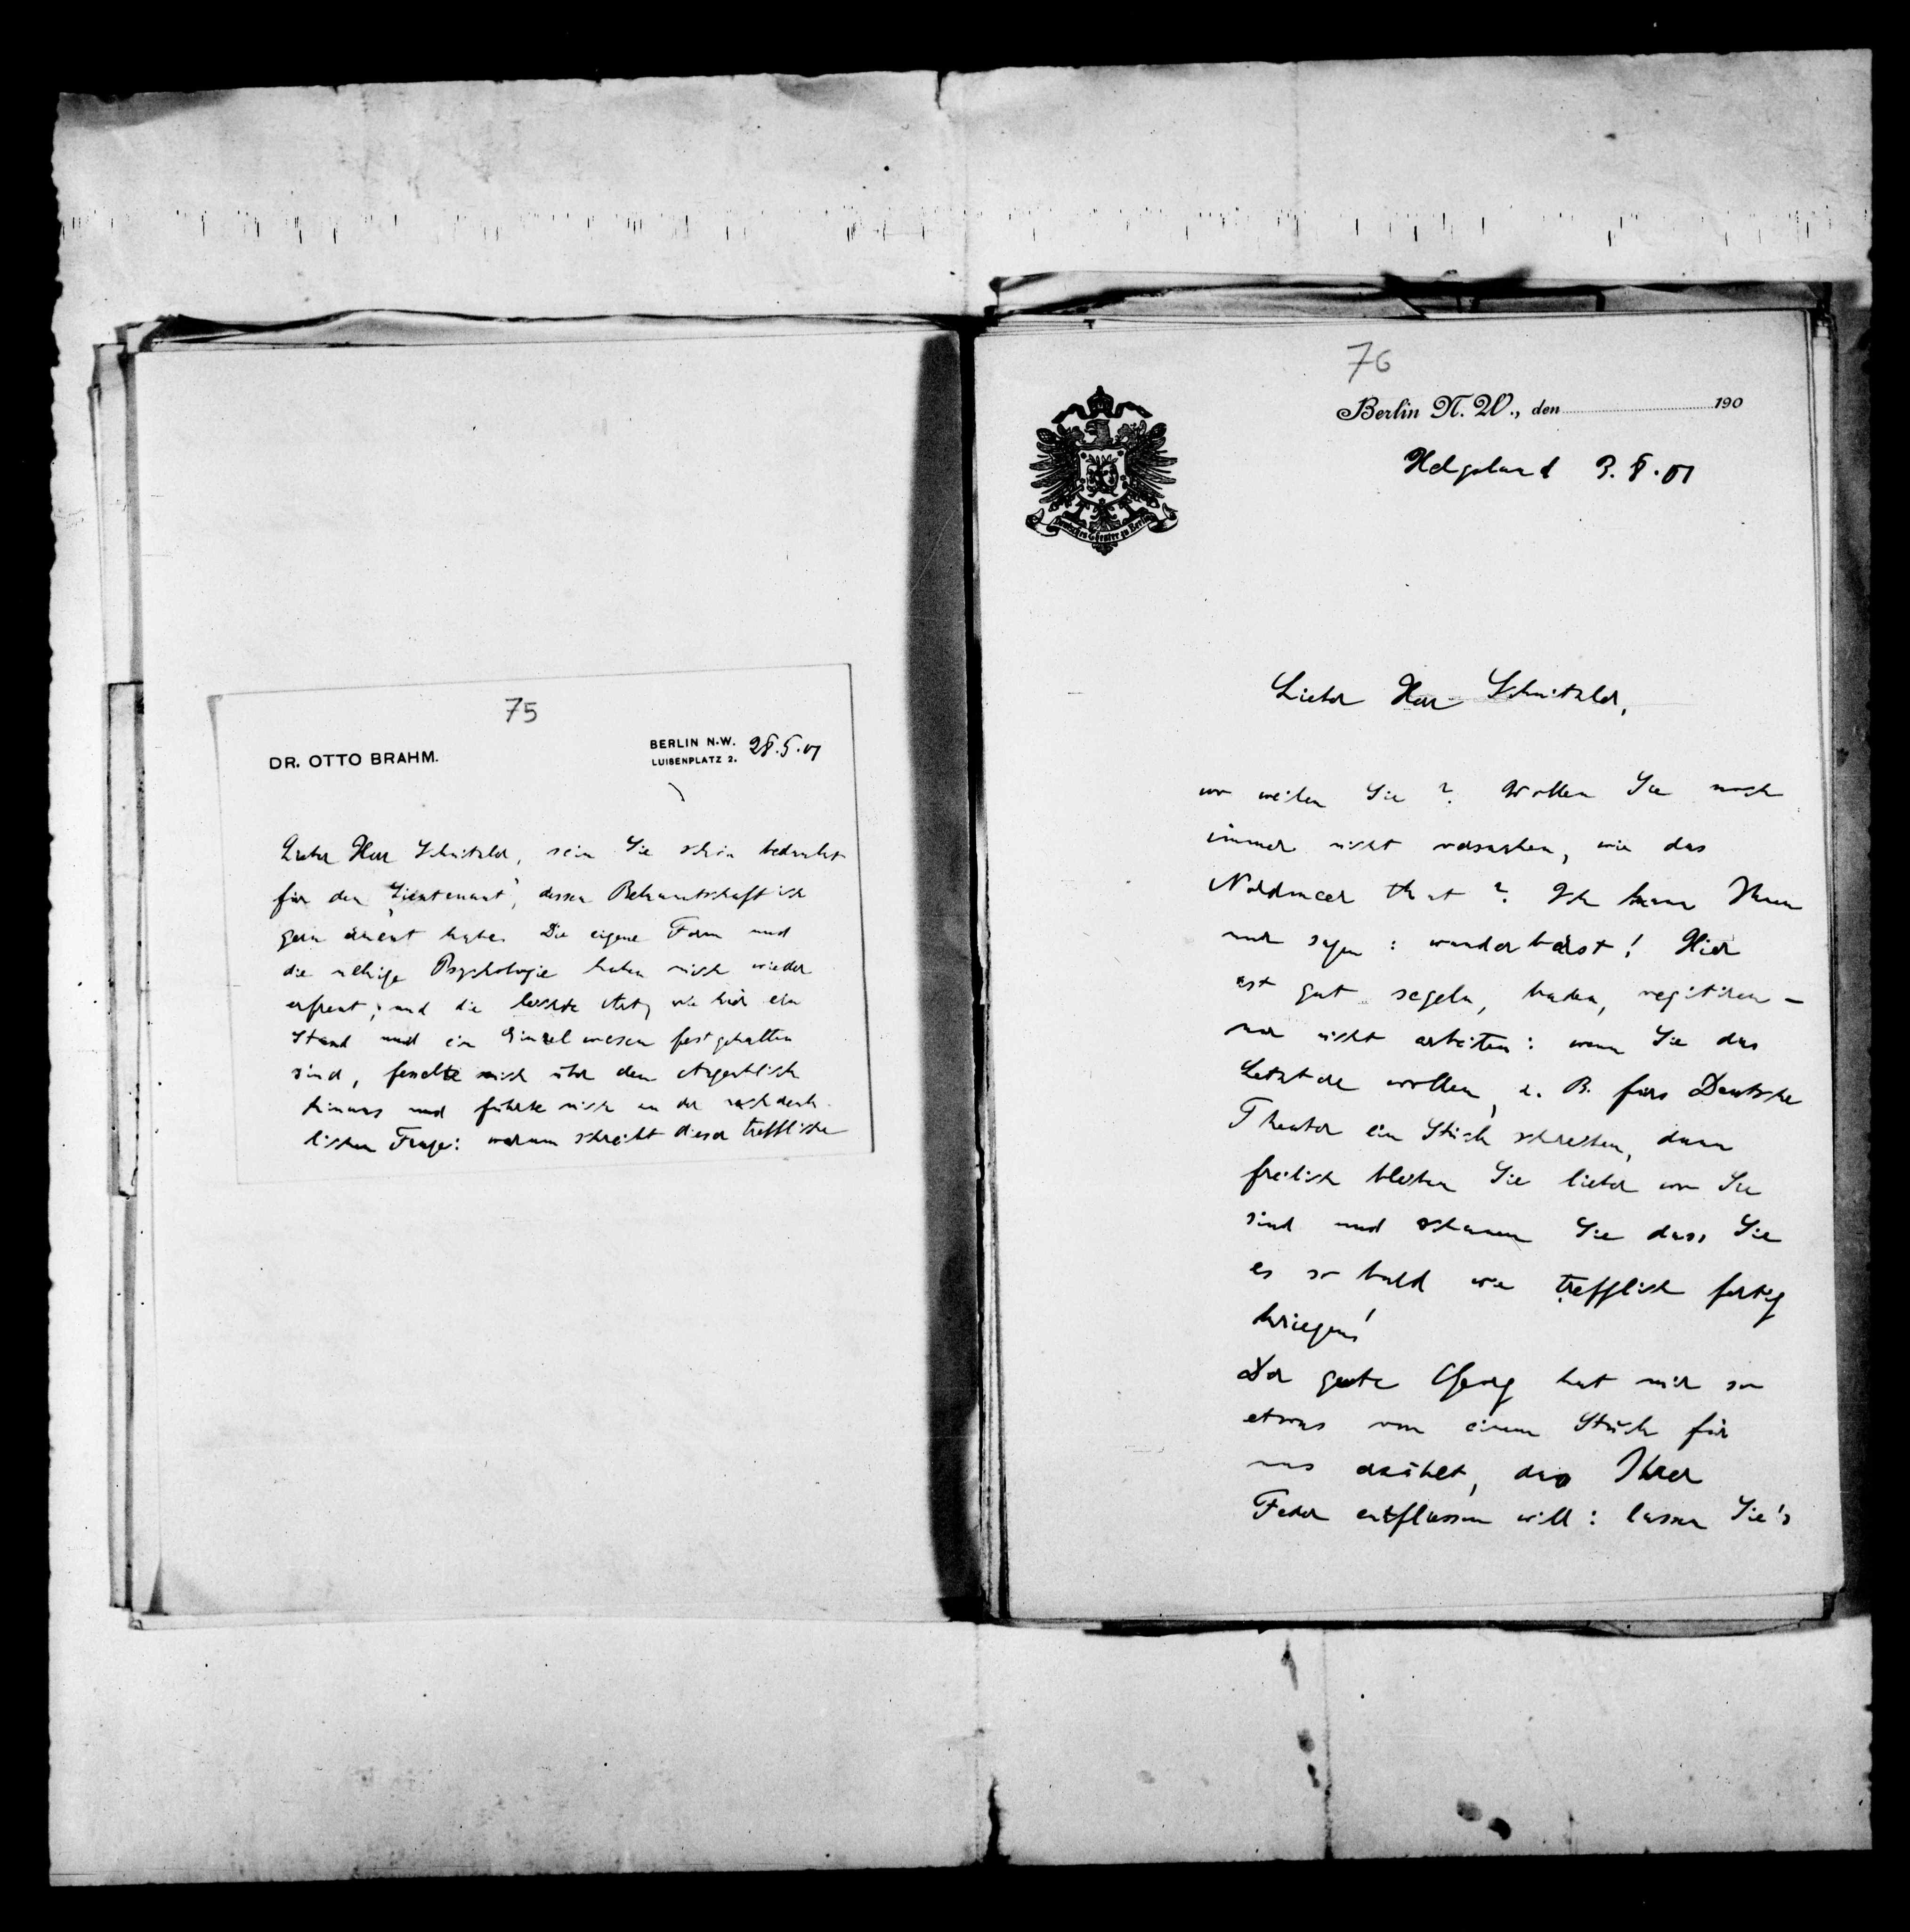 75
DR. OTTO BRAHM.
BERLIN N.W.
LUISENPLATZ 2.
28.5.01
Lieber Herr Schnitzler, sein Sie schön bedankt
für den „Lieutenant", dessen Bekanntschaft ich
gern erneut habe. Die eigene Form und
die Psychologie haben mich wieder
erfreut; und die leichte Art, wie hier ein
Stand und ein Einzelwesen festgehalten
sind, fesselte mich über den Augenblick
hinaus und führte mich zu der nachdenk-
lichen Frage: warum schreibt dieser treffliche
76
Berlin N. W., den 190
Deutsches Theater zu Berlin
Helgoland 3.8.01
Lieber Herr Schnitzler,
wo weilen Sie? Wollen Sie noch
immer nicht versuchen, wie das
Nordmeer thut? Ich kann Ihnen
nur sagen: wunderbarst! Hier
ist gut segeln, baden, vegitiren –
nur nicht arbeiten: wenn Sie das
Letztere wollen, z. B. fürs Deutsche
Theater ein Stück schreiben, dann
freilich bleiben Sie lieber wo Sie
sind und schauen Sie dass Sie
es so bald wie trefflich fertig
kriegen!
Der gute Georg hat mir so
etwas von einem Stück für
uns erzählt, das Ihrer
Feder entfliessen will: lassen Sie's